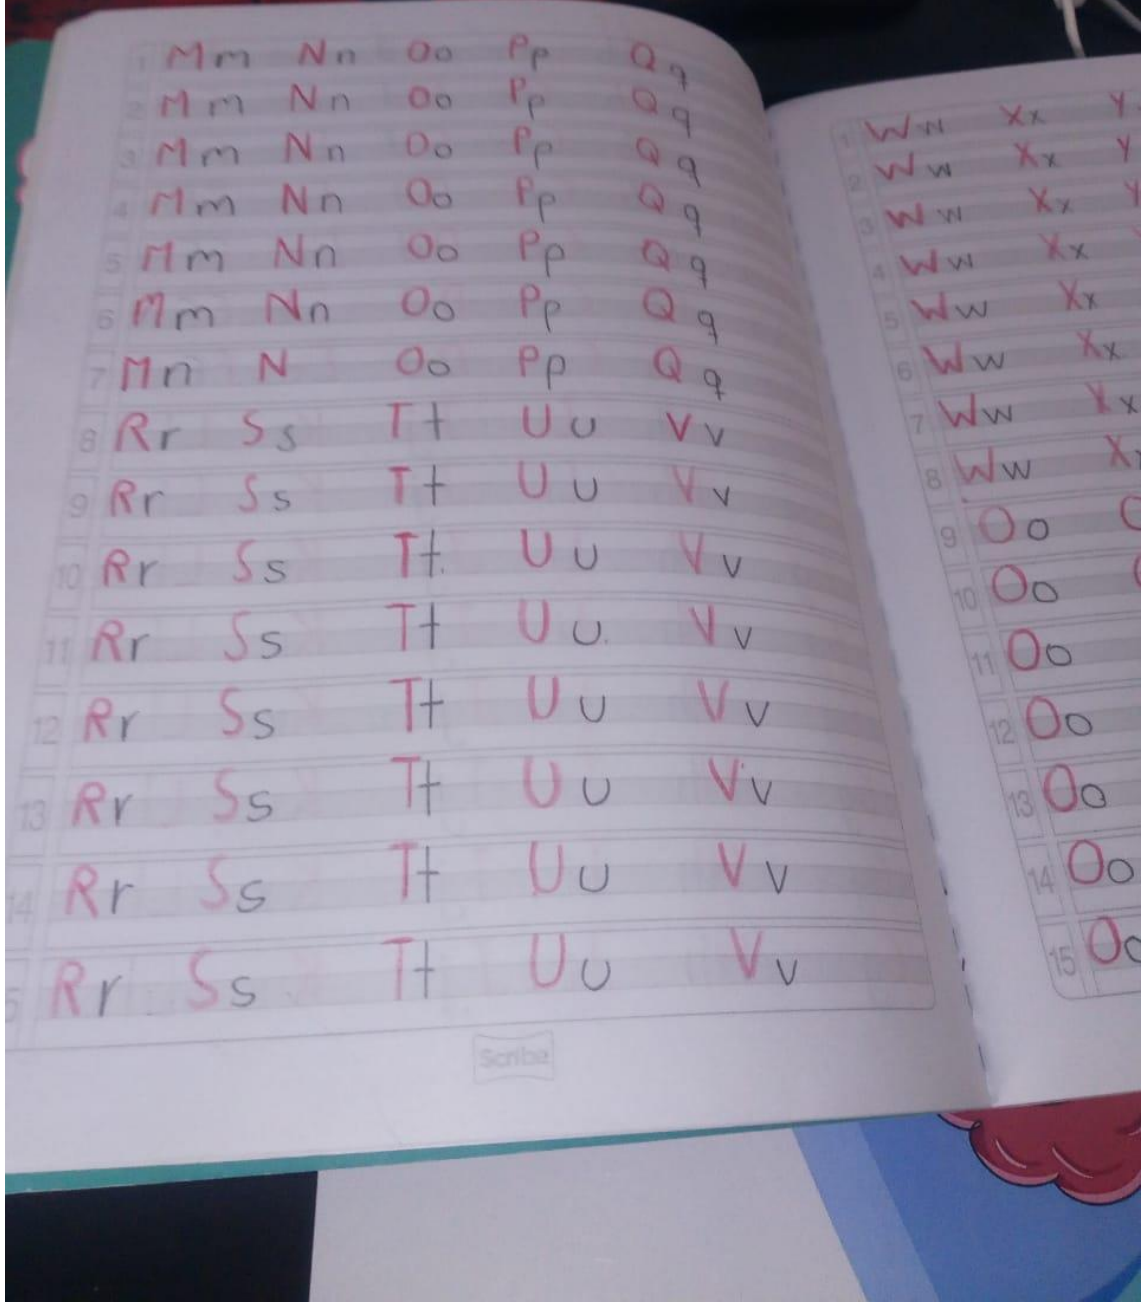 1 Mm Nn Oo Pp Qq
2 Mm Nn Oo Pp Qq
3 Mm Nn Oo Pp Qq
4 Mm Nn Oo Pp Qq
5 Mm Nn Oo Pp Qq
6 Mm Nn Oo Pp Qq
7 Mn N Oo Pp Qq
8 Rr Ss Tt Uu Vv
9 Rr Ss Tt Uu Vv
10 Rr Ss Tt Uu Vv
11 Rr Ss Tt Uu Vv
12 Rr Ss Tt Uu Vv
13 Rr Ss Tt Uu Vv
14 Rr Ss Tt Uu Vv
5 Rr Ss Tt Uu Vv
Scribe
1 Ww Xx Y
2 Ww Xx Y
3 Ww Xx Y
4 Ww Xx
5 Ww Xx
6 Ww Xx
7 Ww Xx
8 Ww Xx
9 Oo
10 Oo
11 Oo
12 Oo
13 Oo
14 Oo
15 Oo